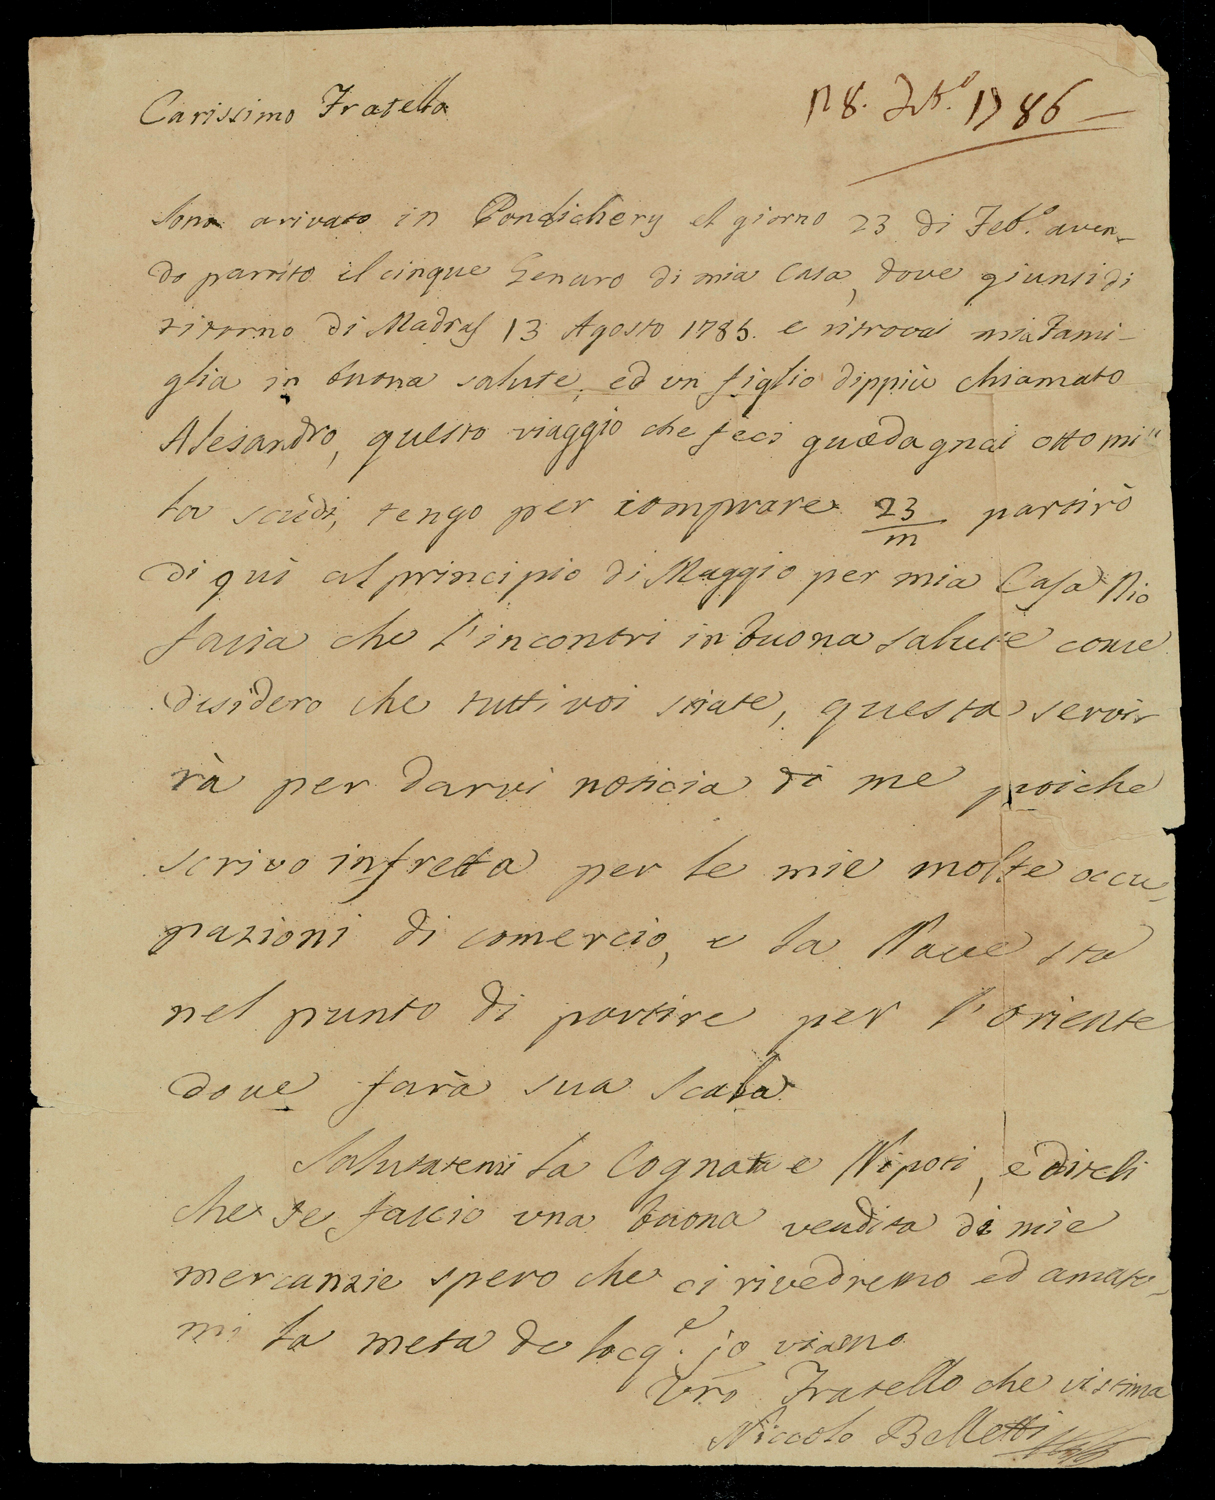 Carissimo Fratello
1786
Sono arivato in Pondichery el giorno 23 di Feb.o aven-
do partito il cinque Genaro di mia Casa, dove giunsi di
ritorno di Madras 13 Agosto 1785 e ritrovai mia Fami-
glia in buona salute, ed un figlio dippiù chiamato
Alesandro, questo viaggio che feci guadagnai otto mi"
la scudi, tengo per comprare 23/m partirò
di quì al principio di Maggio per mia Casa Dio
facia che l'incontri in buona salute come
disidero che tutti voi siate, questa servir
rà per darvi noticia di me poiche
scrivo infretta per le mie molte occu-
pazioni di comercio, e la Nave sta
nel punto di partire per l'oriente
dove farà sua Scala
Salutatemi la Cognata e Nipoti, e diteli
che se faccio una buona vendita di mie
mercanzie spero che ci rivedremo ed amate-
mi la meta de jo
Vro Fratello che vi stima
Niccolo Belletti